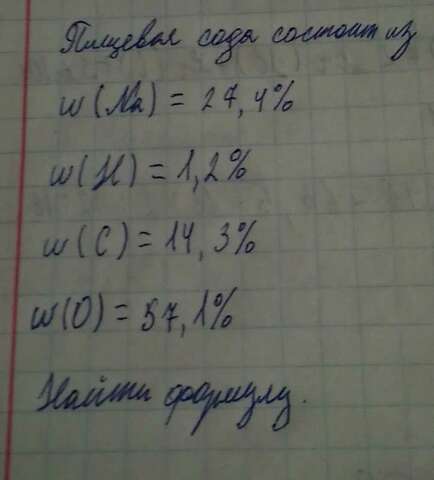 Пищевая сода состоит из
w(Na) = 27,4%
w(H) = 1,2%
w(C) = 14,3%
w(O) = 57,1%
Найти формулу.